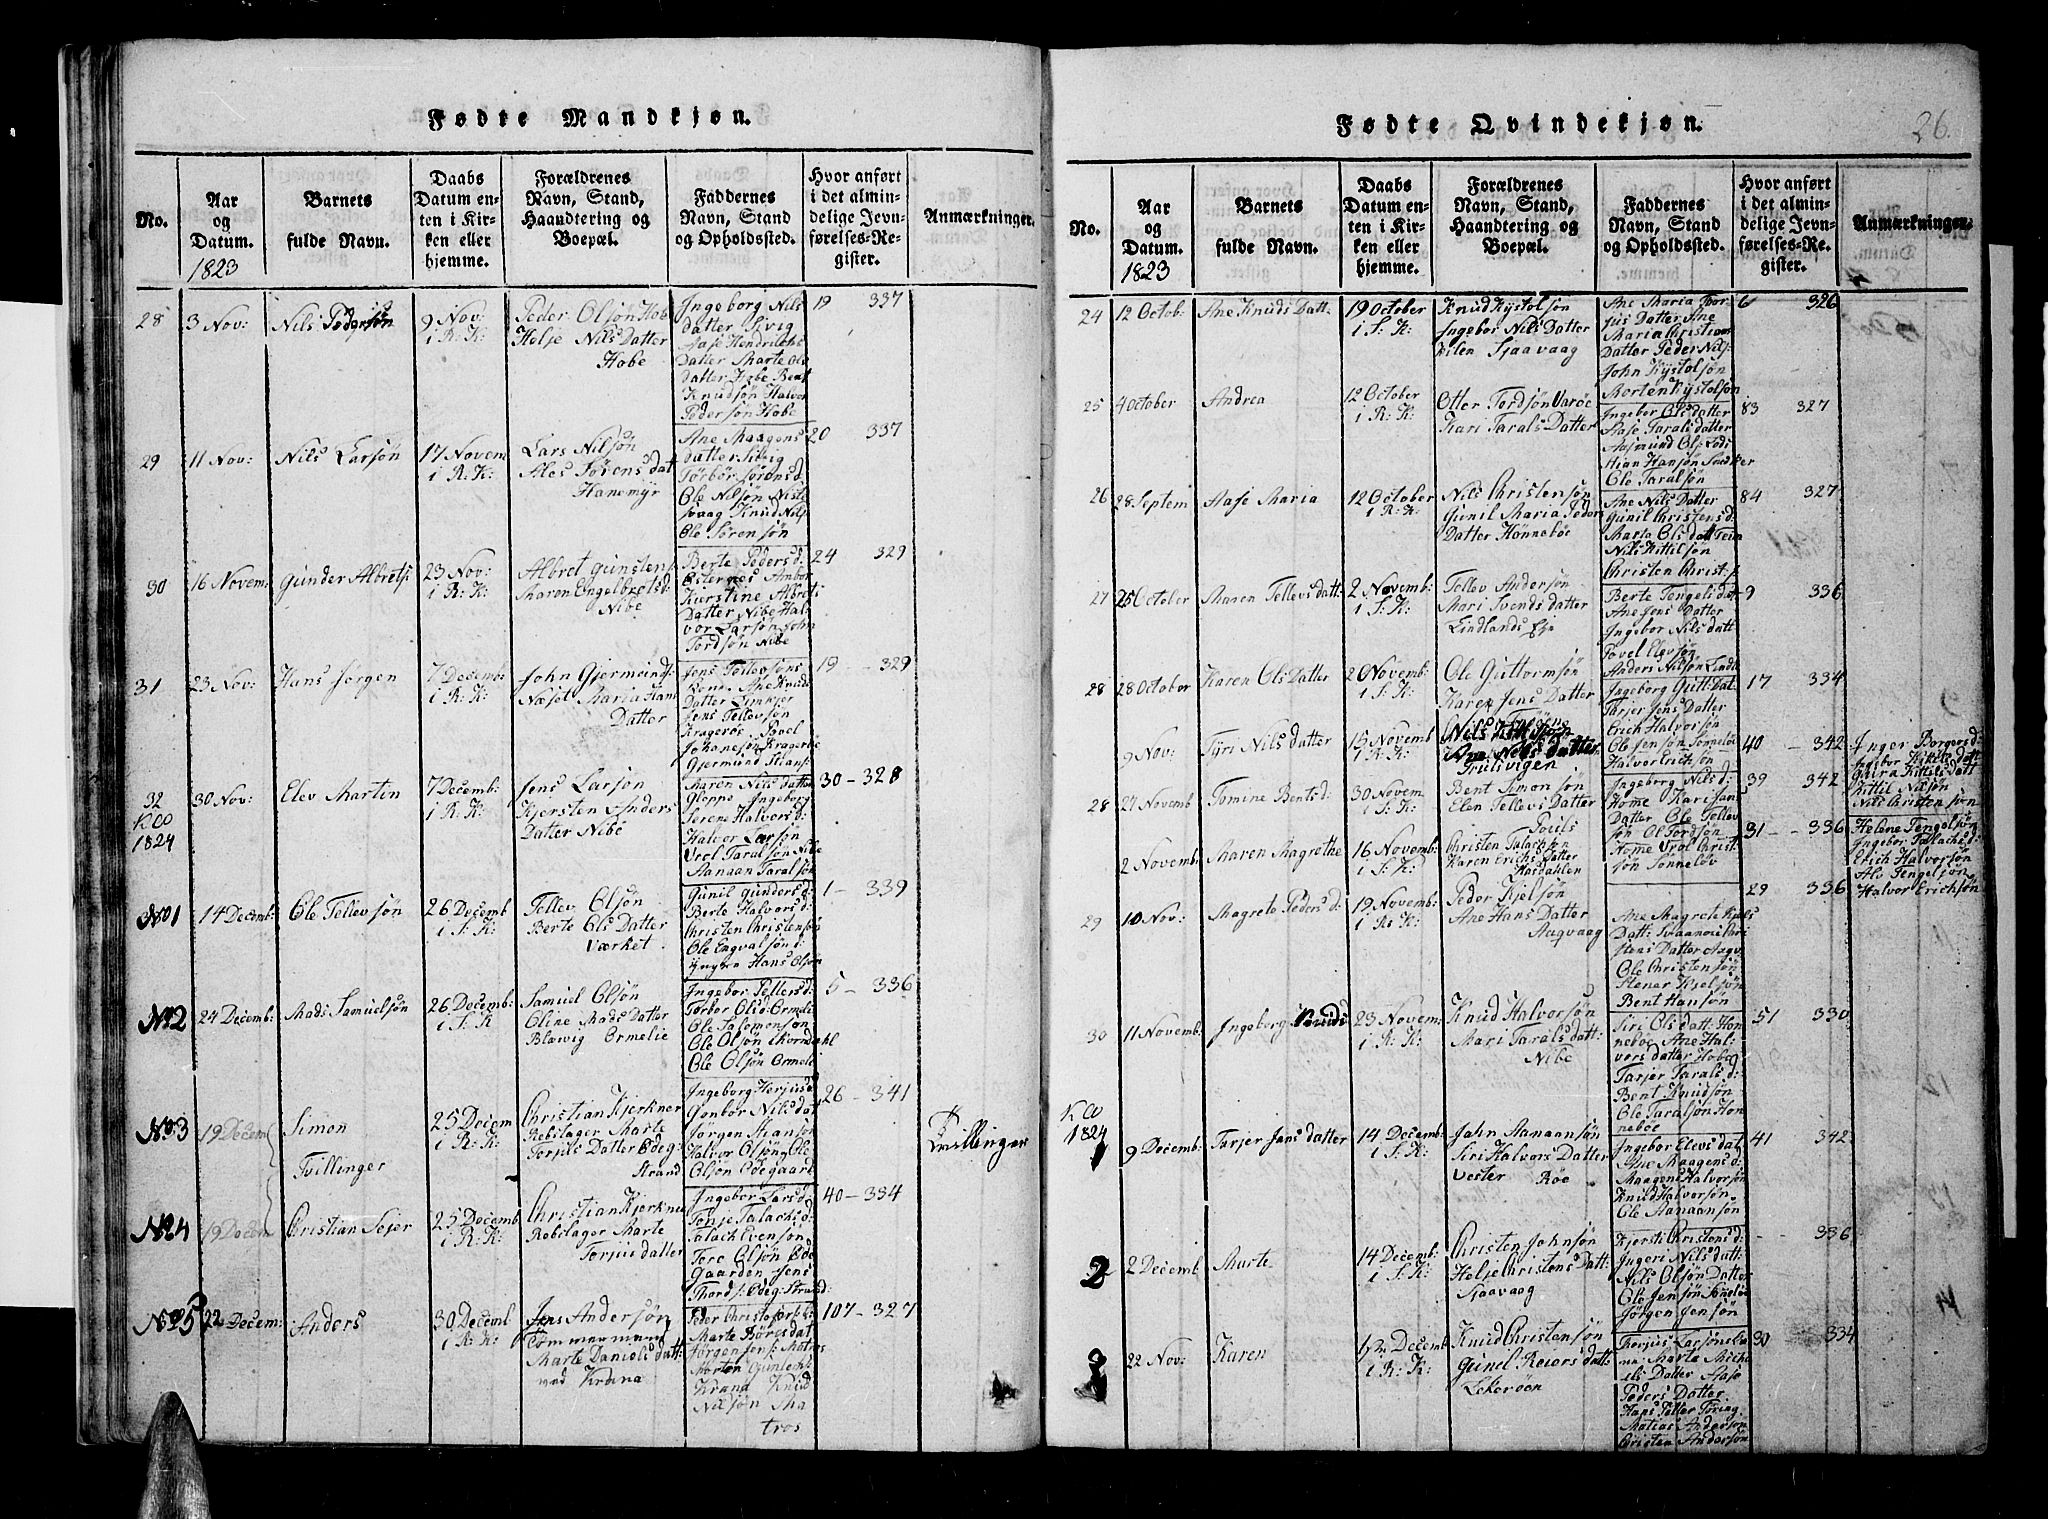 Fødte Mandkjøn.
No.
Aar
og
Datum.
1823
Barnets
fulde Navn.
Daabs
Datum en-
ten i Kir-
ken eller
hjemme.
Forældrenes
Navn, Stand,
Haandtering og
Boepæl.
Faddernes
Navn, Stand
og Opholdssted.
Hvor anført
i det almin-
delige Jevn-
førelses-Re-
gister.
Anmærkninger.
28
3 Nov:
Nils Pedersøn
9 Nov:
i R: K:
Peder Olsøn Hobe
Helje Nils Datter
Hobe
Ingeborg Nils
datter
Datter Marte Ols
datter Hobe Bent
Knudsøn Halvor
Pedersøn Hobe
19 337
29
11 Nov:
Nils Larsøn
17 Novem
i R: K:
Lars Nilsøn
Ales Sørens dat
Hanemyr
Ane Maagens
datter
Ole Nilsøn
Knud Nils
Ole Sørensøn
20 337
30
16 Novem:
Gunder Albrets:
23 Nov:
i R: K:
Albret Gunstens:
Maren Engelbrets d:
Nibe
Berte Peders d:
Kirstine Albret
Datter Nibe Hal-
vor Larsøn John
Tordsøn Nibe
24 329
31
23 Nov:
Hans Jørgen
7 Decemb:
i R: K:
John Gjermunds:
Næset Maria Hans
Datter
Jens Tellevsøns
Kone Ane Knuds
Datter
Jens Tellevsøn
Kragerøe Povel
Johannesøn Kragerøe
Gjermund
19 - 329
32
KCO
1824
30 Nov:
Elev Martin
7 Decemb:
i R: K:
Jens Larsøn
Kjersten Anders
Datter Nibe
Maren Nils datter
Gloppe Ingebor
Serene Halvors d:
Halvor Larsøn
Vrol Taralsøn Nibe
Aanaan Taralsøn
30 - 328
No 1
14 Decemb:
Ole Tellevsøn
26 Decemb
i S: K:
Tellev Olsøn
Berte Ols Datter
Værket.
Gunil Gunders d:
Berte Halvors d:
Christen Christensøn
Ole Engvalsøn
Hans Olsøn
1 - 339
No 2
24 Decemb:
Mads Samuelsøn
26 Decemb:
i S: K
Samuel Olsøn
Oline Mads Datter
Blæwig Ormelie
Ingebor Tellefs d:
Torbor Ols d: Ormeli
Ole Salomonsøn
Ole Olsøn
Ole Olsøn Ormeli
5 - 336
No 3
19 Decem
Simon
Tvillinger
25 Decem
i R: K:
Christian Kjerkner
Rebslager Marte
Torjus Datter Odeg
Strand
Ingeborg Terjus d:
Gonbor Nils dat
Jørgen Stiansøn
Halvor Olsøn Ole
Olsøn Odegaard
26 - 341
Tvillinger
No 4
19 Decem
Christian Sejer
25 Decemb
i R: K:
Christian Kjerkner
Rebslager Marte
Torjus datter
Ingebor Lars d:
Tonje Talachs d:
Talach Evensøn
Tere Olsøn Ode
Gaarden Jens
40 - 334
No 5
22 Decem:
Anders
30 Decembl
i R: K:
Jens Andersøn
Tømmermand
Marte Daniels datt:
ved Krana
Peder Christofers:
Marte Børes dat
Jørgen Jens: Matros
Morten
Krana Knud
Nilsøn Ma
tros
107 - 327
Fødte Qvindekjøn.
26.
No.
Aar
og
Datum.
1823
Barnets
fulde Navn.
Daabs
Datum en-
ten i Kir-
ken eller
hjemme.
Forældrenes
Navn, Stand,
Haandtering og
Boepæl.
Faddernes
Navn, Stand
og Opholdssted.
Hvor anført
i det almin-
delige Jevn-
førelses-Re-
gister.
Anmærkninger.
24
12 Octob:
Ane Knuds Datt:
19 October
i S: K:
Knud Kystolsøn
Ingebor Nils Datter
Sjaavaag
Ane Maria Tor
jus Datter Ane
Maria Christians
Datter Peder Nils:
John Kystolsøn
Morten Kystolsøn
6 326
25
4 October
Andrea
12 October
i R: K:
Otter Tordsøn Varøe
Kari Tarals Datter
Ingebor Ols datter
Aase Tarals datter
Aasmund Ols:
Hansøn Snedker
Ole Taralsøn
83 327
26
28 Septem
Aase Maria
12 October
i R: K:
Nils Christensøn
Gunil Maria Peders
Datter Hønnebøe
Ane Nils Datter
Gunil Christens d:
Maria Ols datt
Nils Kittilsøn
Christen Christ:
84 327
27
25 October
Maren Tellevs datt:
2 Novemb:
i S: K:
Tellev Andersøn
Mari Svends datter
Lindlands Eje
Berte Tengels dat
Ane Jens Datter
Ingebor Nils datt
Povel Elevsøn
Anders Nilsøn Lindl
9 336
28
28 October
Karen Ols Datter
2 Novemb:
i S: K:
Ole Guttormsøn
Karen Jens Datter
Ingeborg Gutt: Dat
Tarjer Jens Datter
Erich Halvorsøn
Ole Jensøn Sønneløv
Halvor Erichsøn
17 334
9 Nov:
Tyri Nils datter
15 Novemb
i R: K:
Nils
Ane Nils datter
Trulsvigen
40 - 342
Inger Borgers d:
Ingebor Kittils datt
Gura Kittels datt
Kittil Nilsøn
Nils Christensøn
28
27 Novemb
Tomine Bents d:
30 Novem
i S: K:
Bent Simonsøn
Elen Tellevs Datter
Ingeborg Nils d:
Home Kari Jans
Datter Ole Tellev
søn Ol Tordsøn
Home Vrol Christ
søn Sønneløv
39 342
2 Novemb:
Maren Magrethe
16 Novemb:
i S: K:
Pouls
Christen Talachsøn
Karen Erichs Datter
Hasdahlen
31 - 336
Helene Tengelsøn
Ingebor Talachs d:
Erich Halvorsøn
Ale Tengelsøn
Halvor Erichsøn
29
10 Nov:
Magrete Peders d:
19 Novemb:
i R: K:
Peder Kjelsøn
Ane Hans Datter
Aaqvaag
Ane Magrete Kjels
Datt:
Hans Datter Aaqv
Ole Christensøn
Stener Kjelsøn
Bent Hansøn
29 336
30
11 Novemb:
Ingeborg Knuds
23 Novem:
i R: K:
Knud Halvorsøn
Mari Tarals datt:
Nibe
Siri Ols datt: Hon
nebøe Ane Hal-
vors datter Hobe
Tarjer Tarals d:
Bent Knudsøn
Ole Taralsøn Hon
nebøe
51 330
KCO
1824
1
9 Decemb:
Tarjer Jans datter
14 Decemb:
i S: K:
John Aanaansøn
Siri Halvors Datter
Vester Røe
Ingebor Elevs dat
Ane Maagens d:
Maagene Halvorsøn
Knud Halvorsøn
Ole Aanaansøn
41 342
2
2 Decemb
Marte
14 Decemb:
i S: K:
Christen Johnsøn
Helje Christens Datt:
Sjaavaag
Kjersti Christens d:
Ingeri Nils datt:
Nils Olsøn Datter
Ole Jensøn Sønneløv
Jørgen Jensøn
- - 336
3
22 Nov:
Karen
17 Decemb
i R: K:
Knud Christensøn
Gunel Reiers datt:
Lekerøen
Torjus Larsøns
Marte Miche
els Datter Aase
Peders Datter
Hans Peller Tøring
Matias Andersøn
Christen Andersøn
30 334